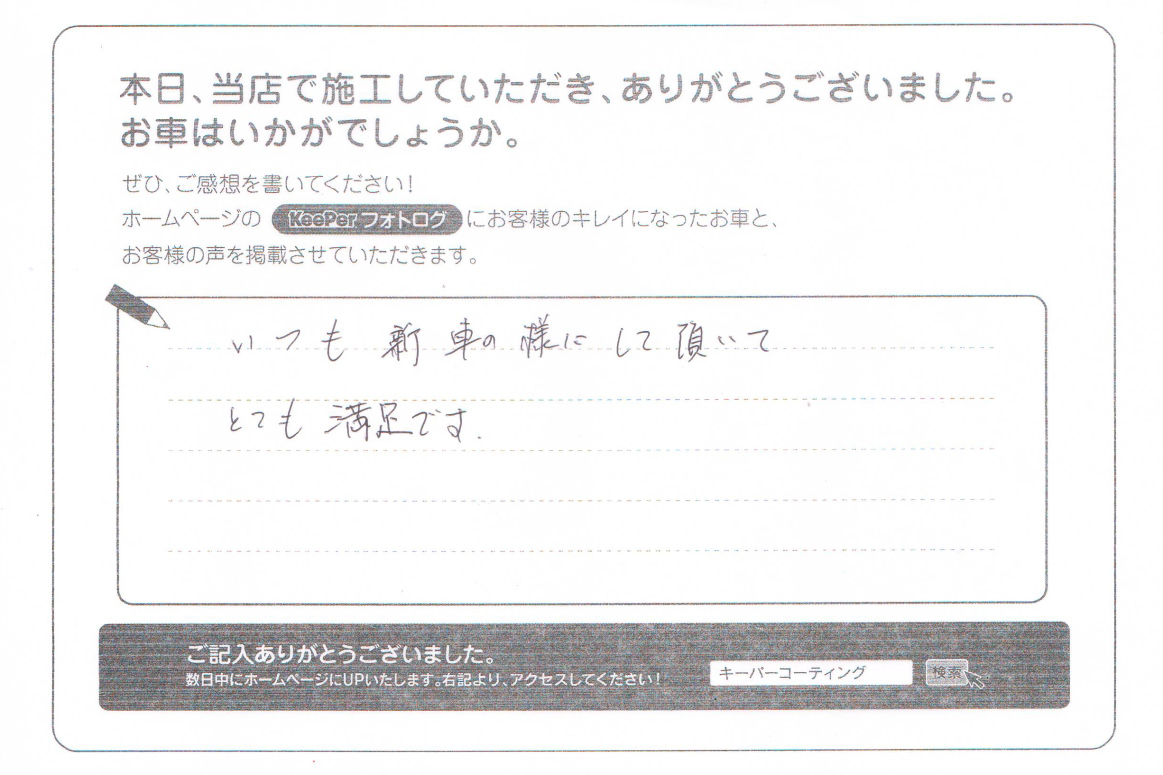 本日、当店で施工していただき、ありがとうございました。
お車はいかがでしょうか。
ぜひ、ご感想を書いてください！
ホームページの KeePer フォトログ にお客様のキレイになったお車と、
お客様の声を掲載させていただきます。
いつも新車の様にして頂いて
とても満足です.
ご記入ありがとうございました。
数日中にホームページにUPいたします。右記より、アクセスしてください！
キーパーコーティング 検索